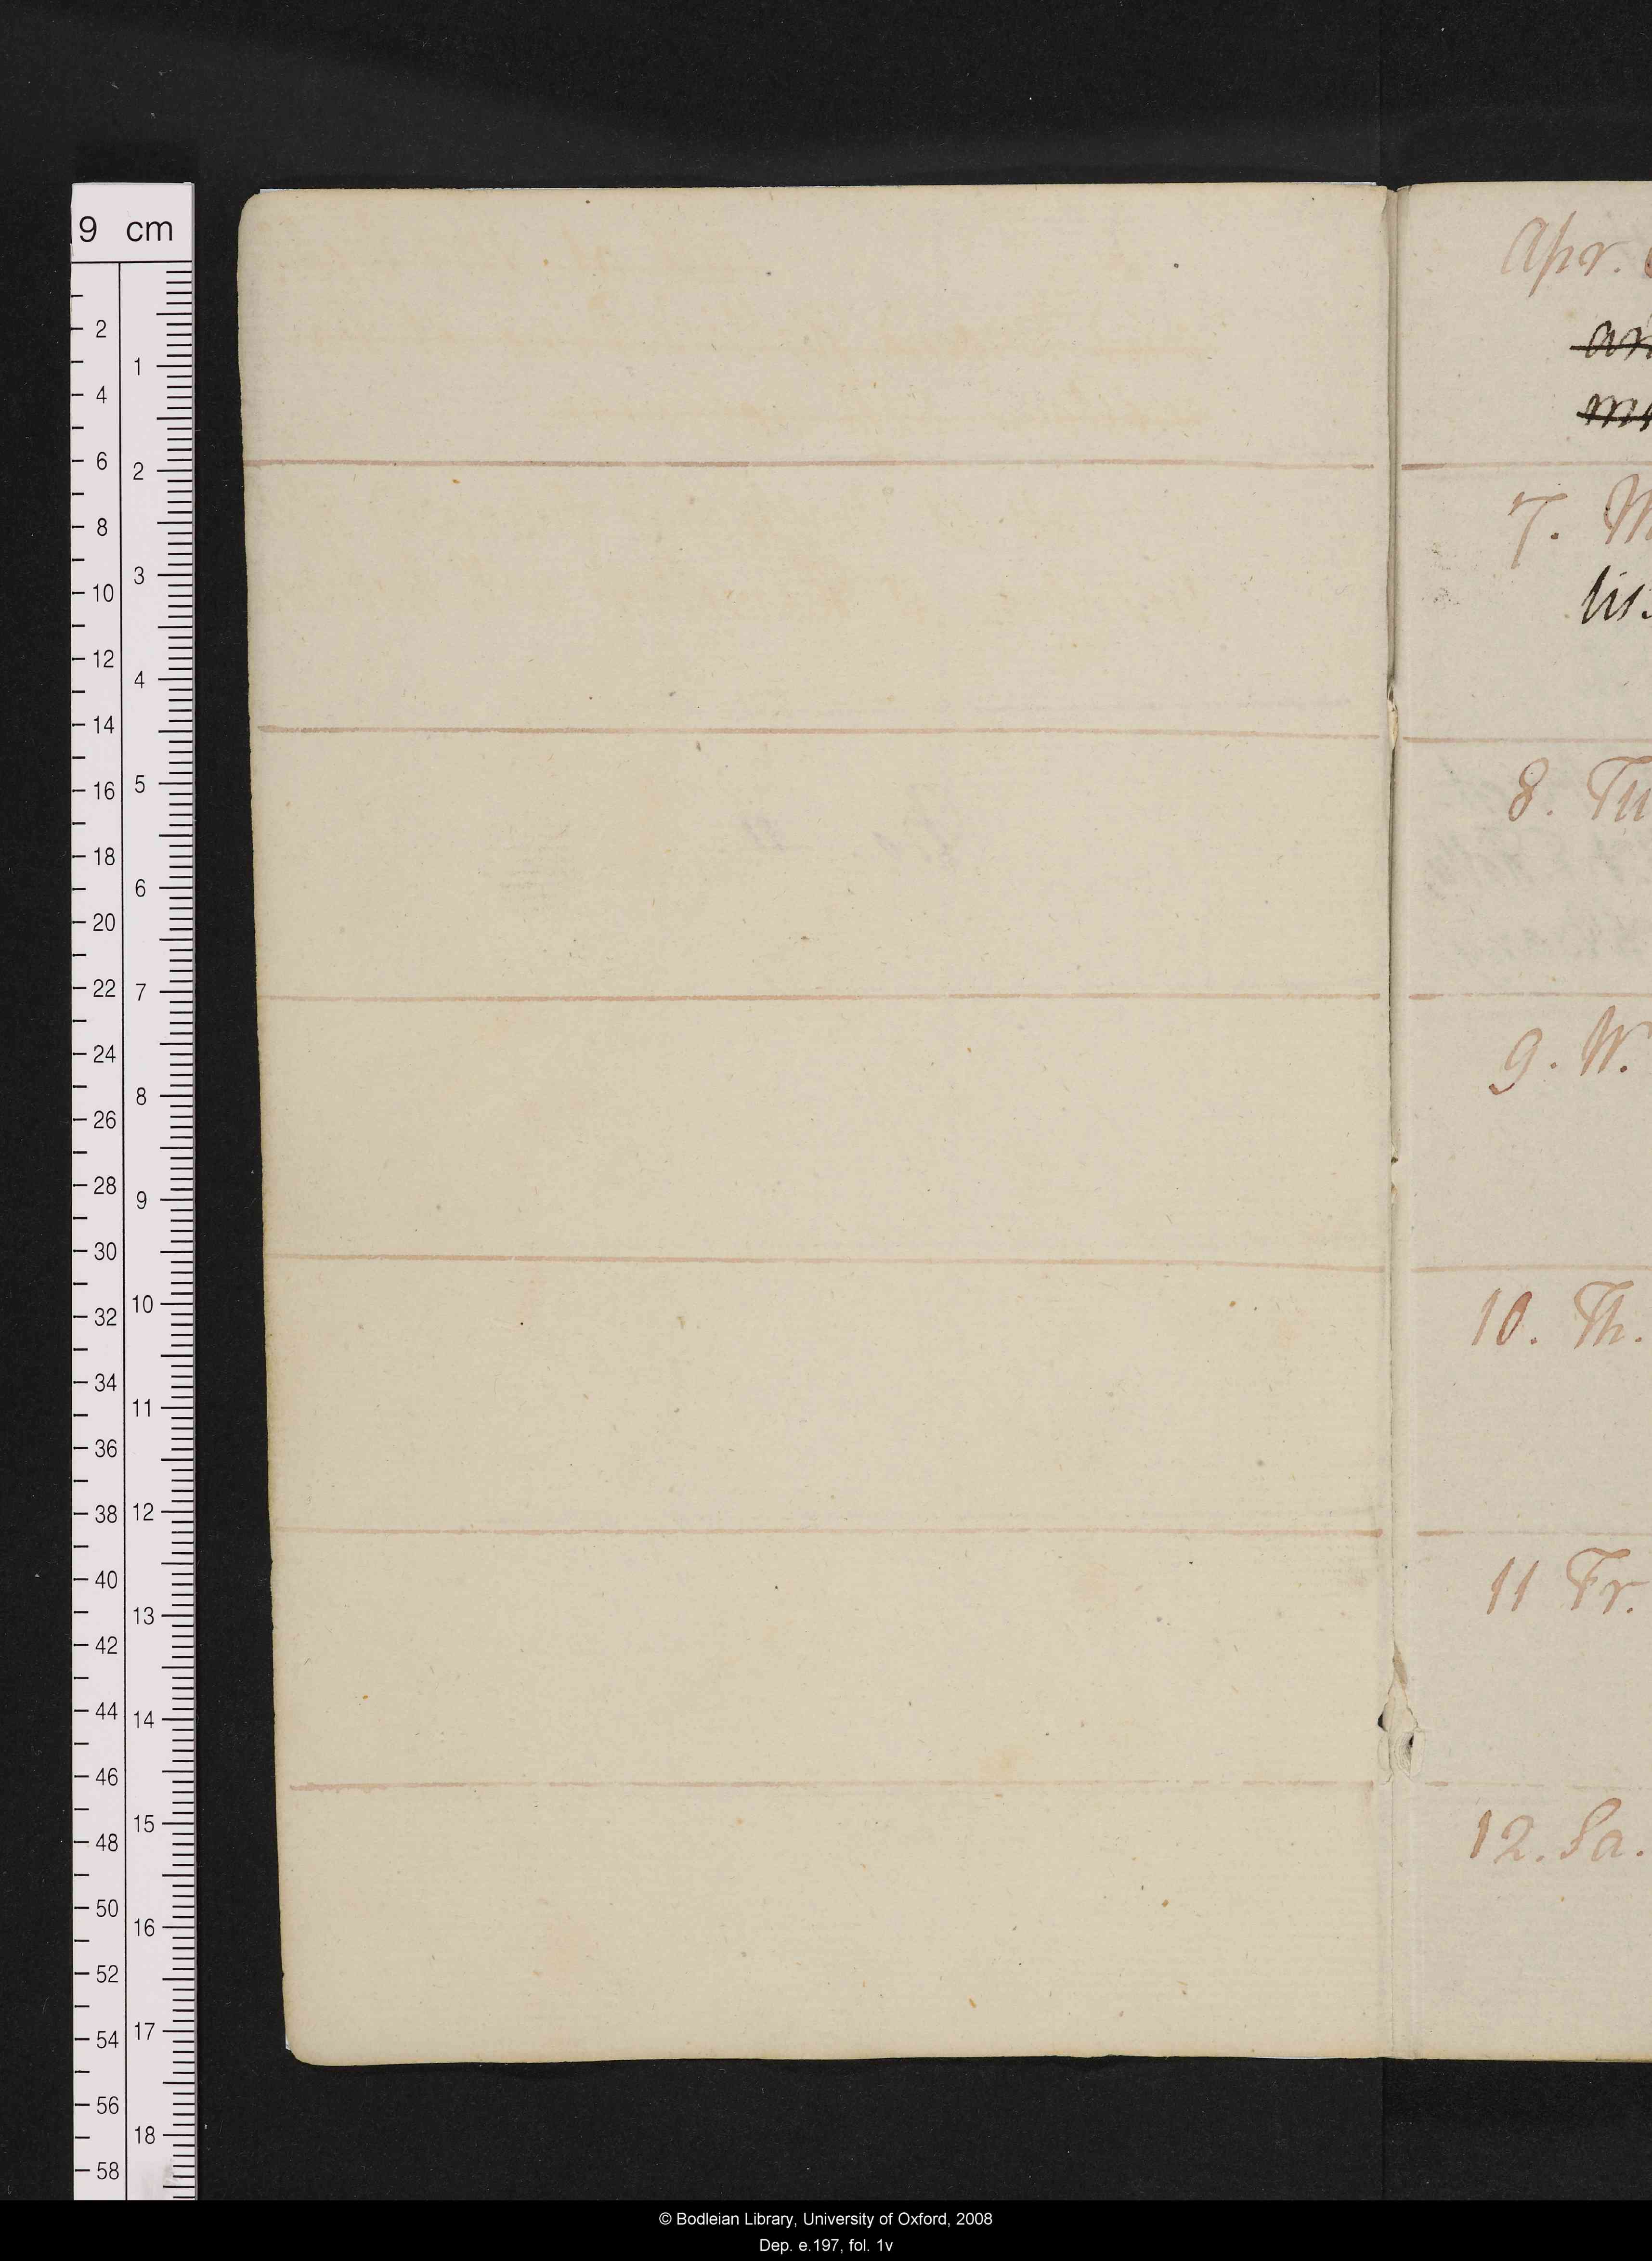 9 cm
2
4
6
8
10
12
14
16
18
20
22
24
26
28
30
32
34
36
38
40
42
44
46
48
50
52
54
56
58
1
2
3
4
5
6
7
8
9
10
11
12
13
14
15
16
17
18
Apr.
7. M
lis.
8. Tu
9. W.
10. Th.
11 Fr.
12. Sa.
© Bodleian Library, University of Oxford, 2008
Dep. e.197, fol. 1v